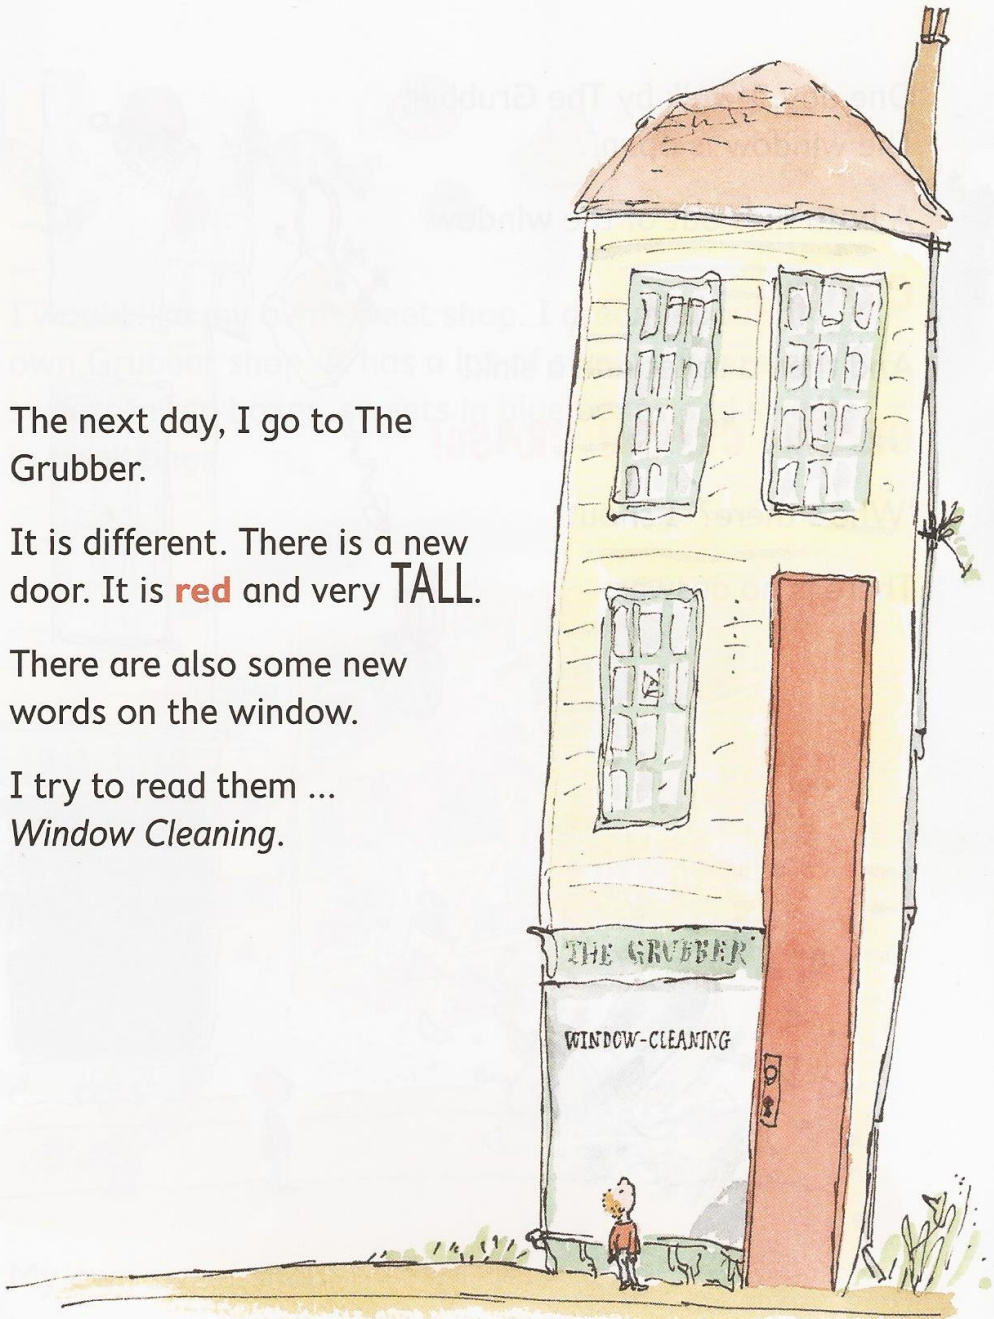 The next day, I go to The
Grubber.
It is different. There is a new
door. It is red and very TALL.
There are also some new
words on the window.
I try to read them ...
Window Cleaning.
THE GRUBBER
WINDOW-CLEANING